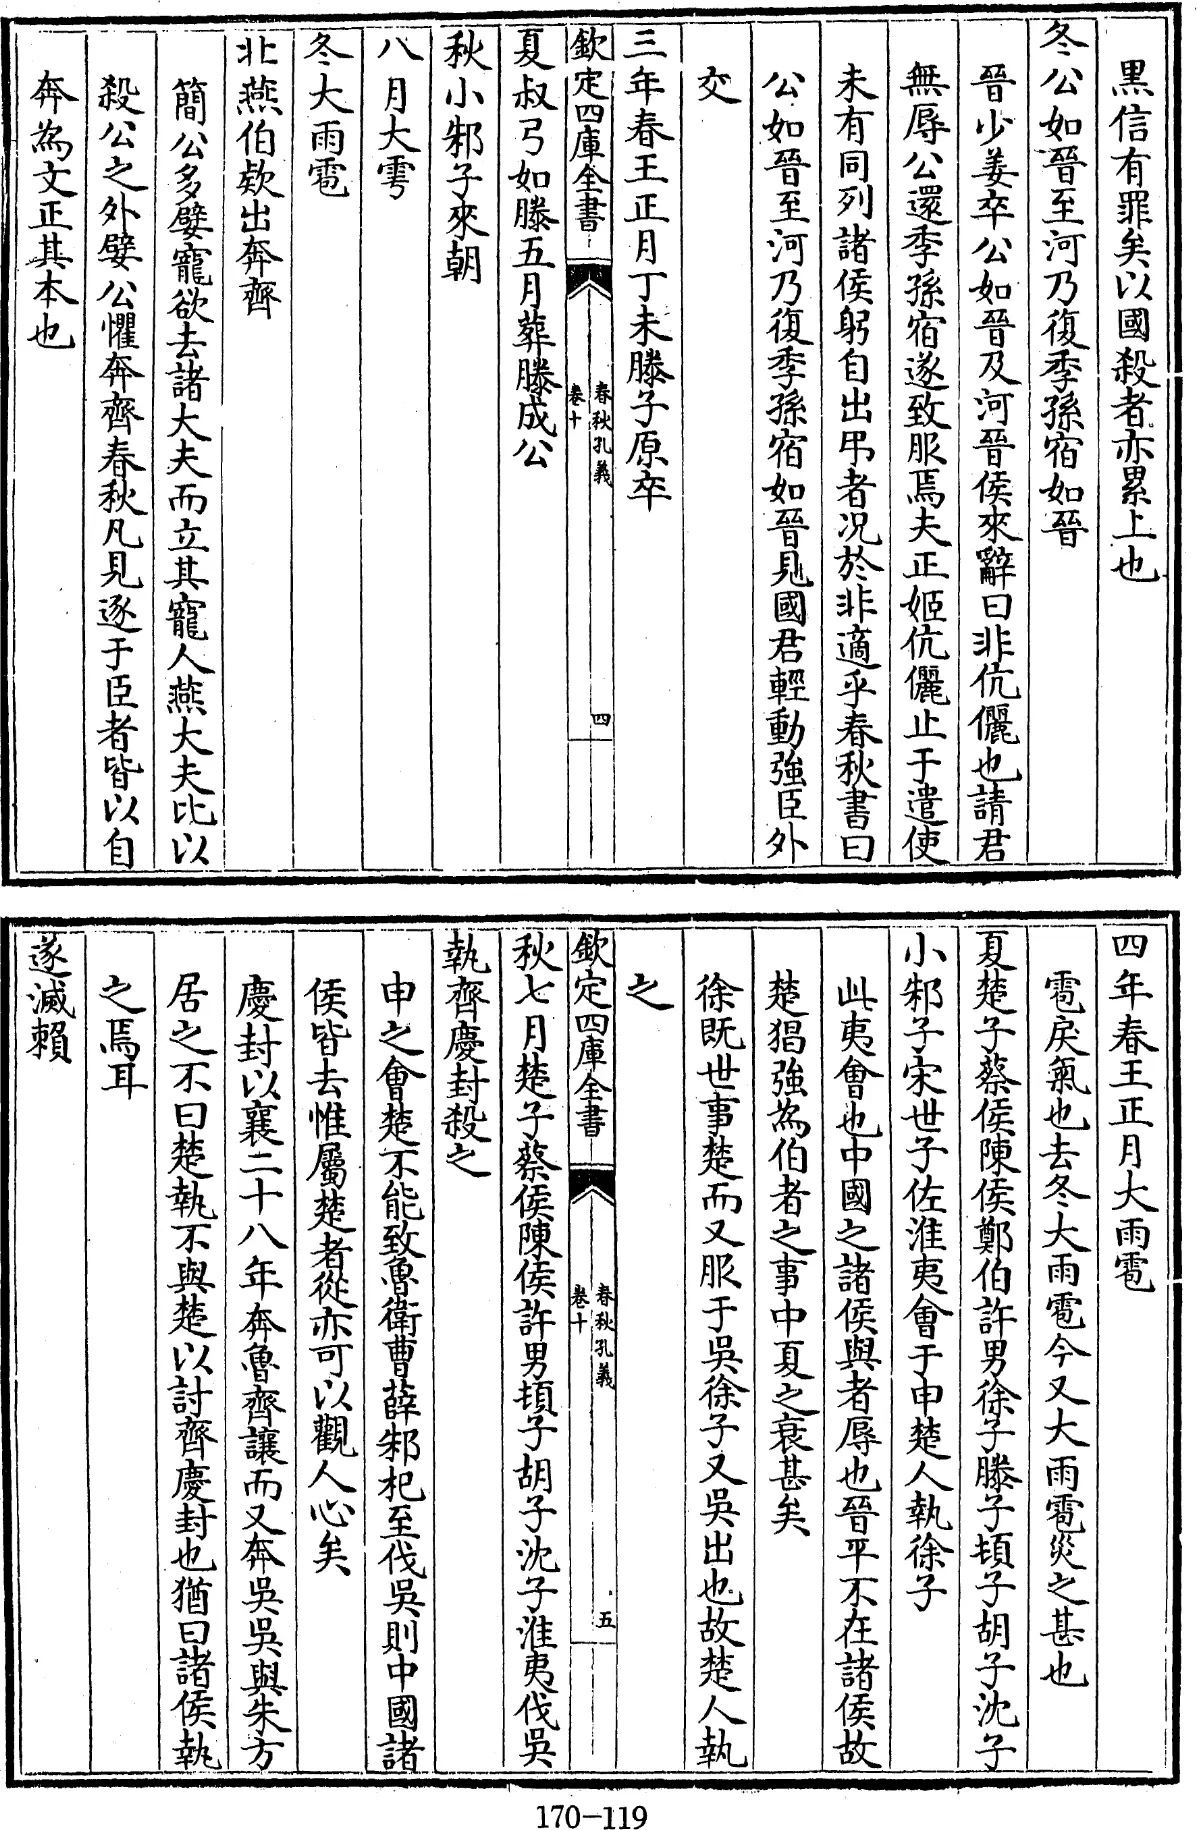 黒信有罪矣以國殺者亦累上也
冬公如晉至河乃復季孫宿如晉
晉少姜卒公如晉及河晉侯來辭曰非伉儷也請君
無辱公還季孫宿遂致服焉夫正姬伉儷止于遣使
未有同列諸侯躬自出弔者况於非適乎春秋書曰
公如晉至河乃復季孫宿如晉見國君輕動強臣外
交
三年春王正月丁未滕子原卒
欽定四庫全書
春秋孔義
卷十
四
夏叔弓如滕五月葬滕成公
秋小邾子來朝
八月大雩
冬大雨雹
北燕伯欵出奔齊
簡公多嬖寵欲去諸大夫而立其寵人燕大夫比以
殺公之外嬖公懼奔齊春秋凡見逐于臣者皆以自
奔為文正其本也
四年春王正月大雨雹
雹戾氣也去冬大雨雹今又大雨雹災之甚也
夏楚子蔡侯陳侯鄭伯許男徐子滕子頓子胡子沈子
小邾子宋世子佐淮夷會于申楚人執徐子
此夷會也中國之諸侯與者辱也晉平不在諸侯故
楚猖強為伯者之事中夏之衰甚矣
徐既世事楚而又服于吳徐子又吳出也故楚人執
之
欽定四庫全書
春秋孔義
卷十
五
秋七月楚子蔡侯陳侯許男頓子胡子沈子淮夷伐吳
執齊慶封殺之
申之會楚不能致魯衛曹薛邾杞至伐吳則中國諸
侯皆去惟屬楚者從亦可以觀人心矣
慶封以襄二十八年奔魯齊讓而又奔吳吳與朱方
居之不曰楚執不與楚以討齊慶封也猶曰諸侯執
之焉耳
遂滅賴
170-119